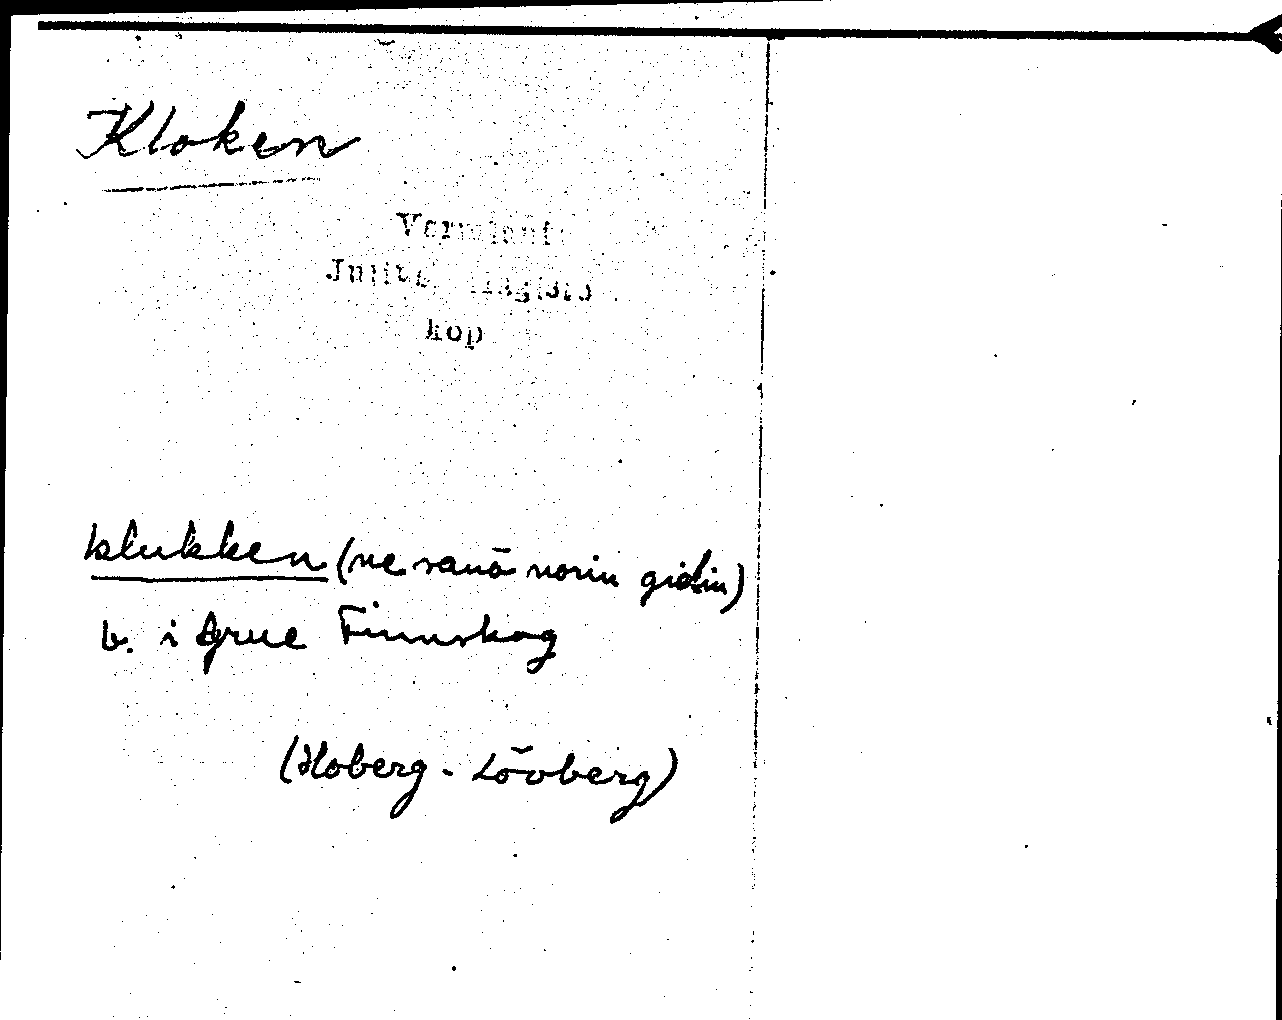 Kloken
kop
klukken (ne sanō norin gidin)
b. i Grue Finnskog
(Hoberg - Lövberg)